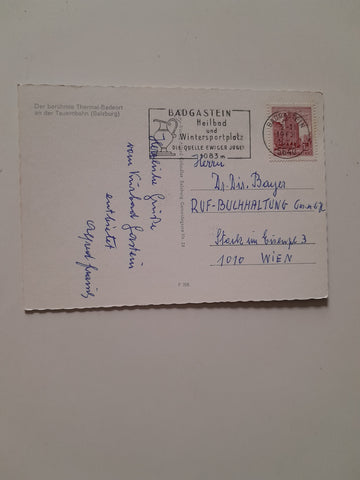 Der berühmte Thermal-Badeort
an der Tauernbahn (Salzburg)
BADGASTEIN
Heilbad
und
Wintersportplatz
DIE QUELLE EWIGER JUGEND
1083 m
BADGASTEIN
Herrn
Dr. Dir. Bayer
RUF-BUCHHALTUNG Ges.m.b.H.
Stock im Eisenpl 3
1010 WIEN
Herzliche Grüße
vom Kurbad Gastein
entbietet
Alfred
P 708